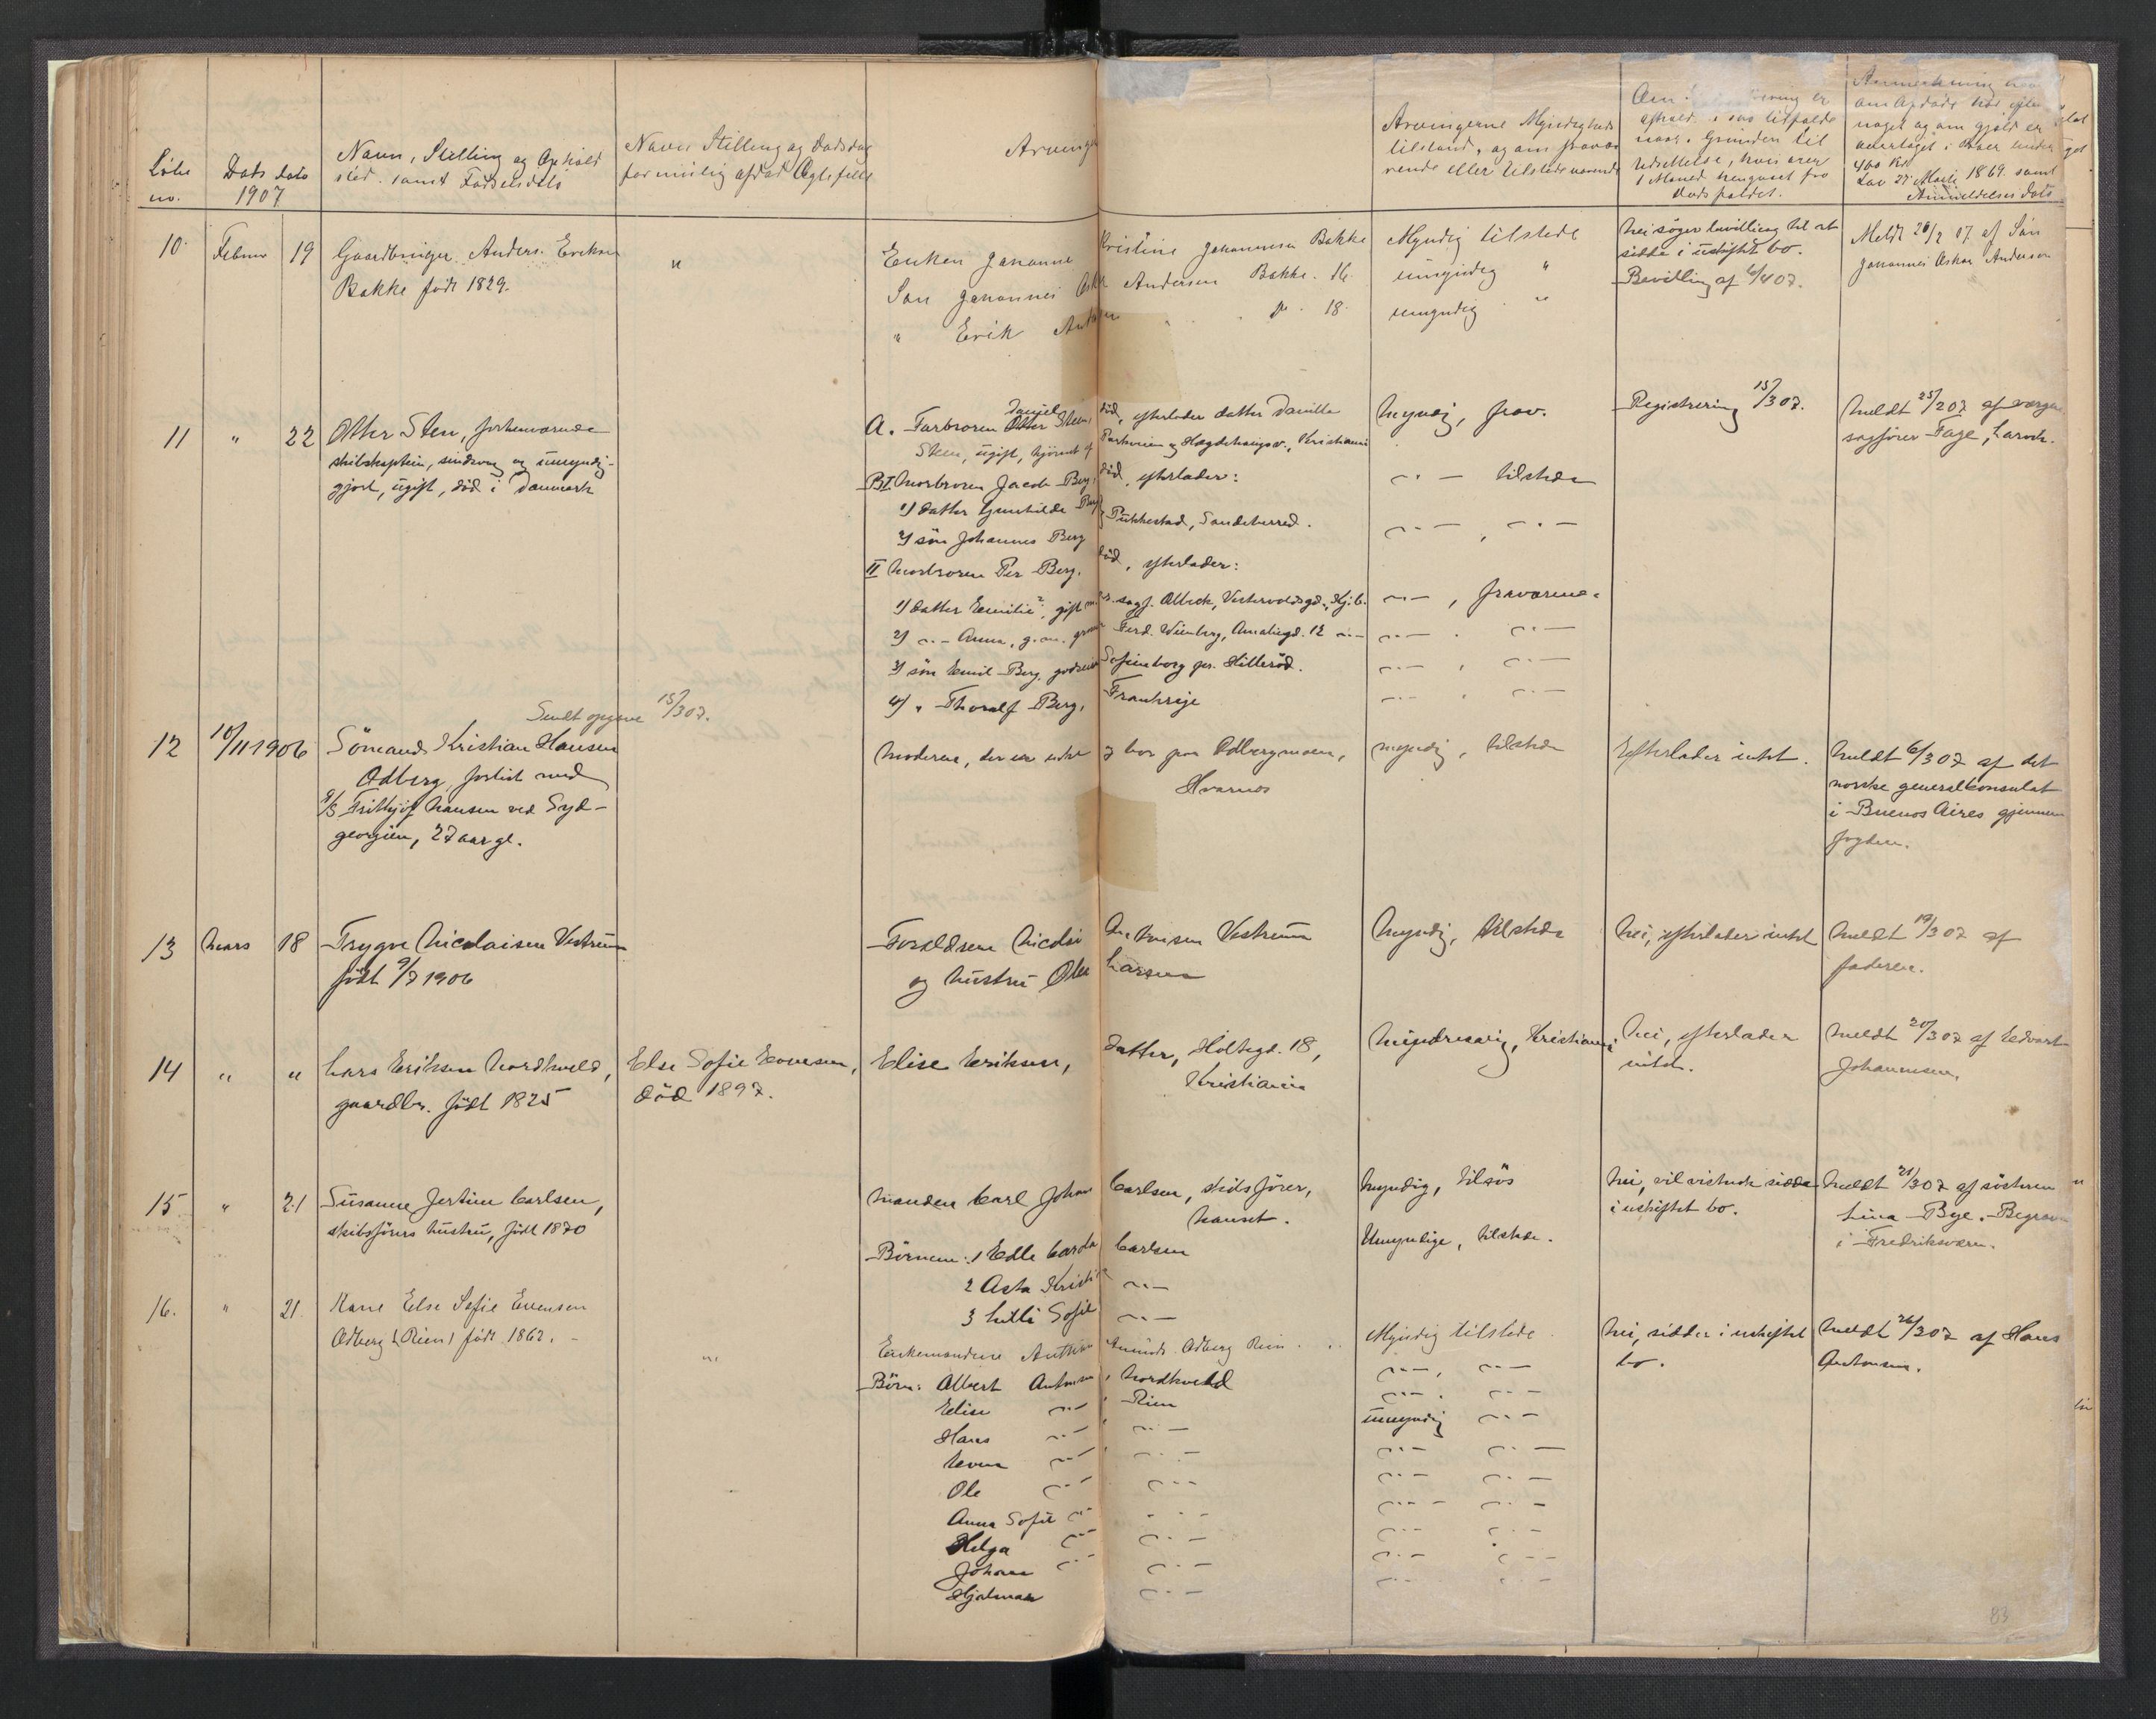 Löbe no.
Døds dato 1907
Navn, Stilling og Ophold
sted. samt Fødselsdato
Navn Stilling og Dødsdag
for mulig afdød Ægtefælle
Arvinger
Arvingerne Myndigheds
tilstand, og om fravæ
rende eller tilstedeværende
afhold. i saa tilfælde
naar. Grunden til
Udsettelse, hvis over
1 Maaned hengaaet fra
dødsfaldet.
Anmerkning
om Afdøde har efter
noget og om gjæld er
overtaget i Boer under
400 Kr.
Lov 27 Marts 1869. samt
Anmeldelses dato
10. Februar 19 Gaardbruger Anders Eriksen
Bakke født 1829.
"
Enken Johanne Kristine Johannesen Bakke
Søn Johannes Oskar Andersen Bakke. 16.
" Erik Anton Do. 18.
Myndig tilstede
umyndig "
umyndig "
Nei søger bevilling til at
sidde i uskiftet bo.
Bevilling af 6/4 07.
Meldt 20/2 07 af Søn
Johannes Oskar Andersen
11 " 22 Otter Sten, forhenværende
skibskaptein, sindssvag og umyndig-
gjort, ugift, død i Danmark
A. Farbroren Daniel Steen, død, efterlader datter Danilla
Steen, ugift, hjørnet af Parkveien og Hægdehaugsv., Kristiania
B I. Morbroren Jacob Berg, død, efterlader:
1) datter Gunhilde Berg, Pukkestad, Sandeherred.
2) søn Johannes Berg
II Morbroren Per Berg, død, efterlader:
1) datter Emilie?, gift m. sagf. Albeck, Vestervoldsgd., Kjb.
2) -"- Anna, g. m. Ferd. Wienberg, Amaliegd. 12 -"-
3) søn Emil Berg, godseier Sofienborg pr. Hilleröd.
4) " Thoralf Berg, Frankrige
Myndig, frav.
-"- tilstede
-"- , -"-
-"- , fraværende
-"- , -"-
-"- , -"-
-"- , -"-
Registrering 15/3 07.
Meldt 25/2 07 af værgen
sagfører Fage, Larvik.
Sendt opgave 15/3 07.
12 10/11 1906 Sömand Kristian Hansen
Odberg, forlist med
S/S Frithjof Nansen ved Syd-
georgien, 27 aar gl.
Moderen, der er enke og bor paa Odbergmoen,
Hvarnes
myndig, tilstede
Efterlader intet.
Meldt 6/3 07 af det
norske generalkonsulat
i Buenos Aires gjennem
fogden.
13 Mars 18 Trygve Nicolaisen Vestrum
født 9/7 1906
Forældrene Nicolai Anthonsen Vestrum
og hustru Olea Larsen
Myndig, tilstede
Nei, efterlader intet
Meldt 19/3 07 af
faderen.
14 " " Lars Eriksen Nordkveld,
gaardbr. født 1825
Else Sofie Evensen,
død 1897.
Elise Eriksen, datter, Holtegd. 18,
Kristiania
Mindreaarig, Kristiania
Nei, efterlader
intet.
Meldt 20/3 07 af Edvart
Johannesen.
15 " 21 Susanne Jertine Carlsen,
skibsførers hustru, født 1870
Manden Carl Johan Carlsen, skibsfører,
Børnene: 1 Edle Carda Carlsen
2 Asta Kristine -"-
3 Lilli Sofie -"-
Myndig, tilsøs
Umyndige, tilstede.
Nei, vil vistnok sidde
i uskiftet bo.
Meldt 21/3 07 af søsteren
Lina Bye. Begraves
i Fredriksværn.
16. " 21 Karen Else Sofie Evensen
Odberg (Rien) født 1862. -
"
Enkemanden Anthon Amunds. Odberg Rien
Børn: Albert Antonsen, Nordkveld
Elise -"- Rien
Hans -"- -"-
Even -"- -"-
Ole -"- -"-
Anna Sofie -"- -"-
Helga -"- -"-
Johan -"- -"-
Hjalmar -"-
Myndig tilstede
-"-, -"-
-"-, -"-
umyndig -"-
-"- -"-
-"- -"-
-"- -"-
-"- -"-
-"- -"-
-"- -"-
Nei, sidder i uskiftet
bo.
Meldt 26/3 07 af Hans
Antonsen.
83